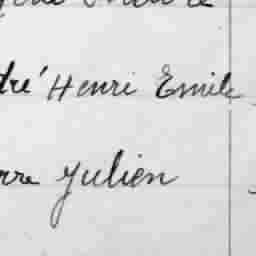 dré Henri Emile
rre Julien